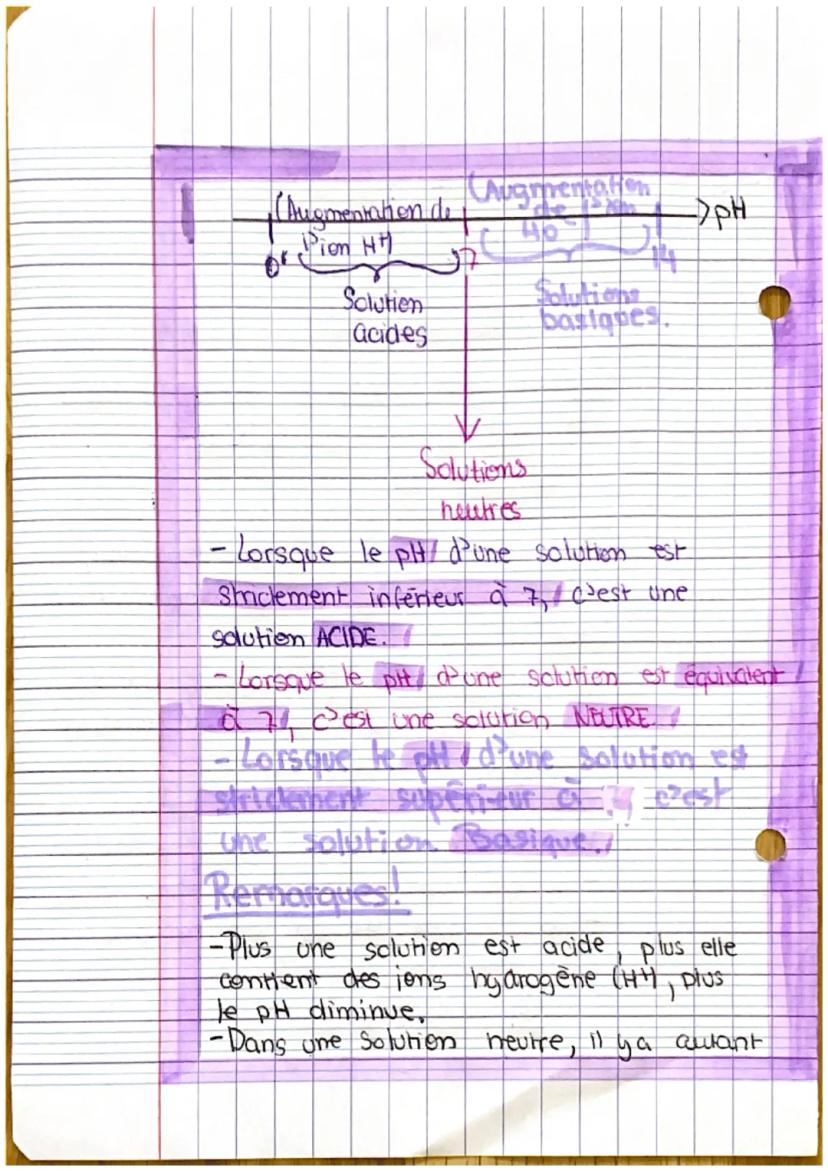 (Augmentation de
l'ion H+)
(Augmentation
de l'ion
HO
→pH
0
7
14
Solution
acides
Solutions
basiques.
Solutions
neutres
- Lorsque le pH d'une solution est
strictement inférieur à 7, c'est une
solution ACIDE.
- Lorsque le pH d'une solution est équivalent
à 7, c'est une solution NEUTRE
- Lorsque le pH d'une solution est
strictement supérieur à 7, c'est
une solution Basique.
Remarques!
-Plus une solution est acide, plus elle
contient des ions hydrogène (H+), plus
le pH diminue.
-Dans une solution neutre, il y a autant